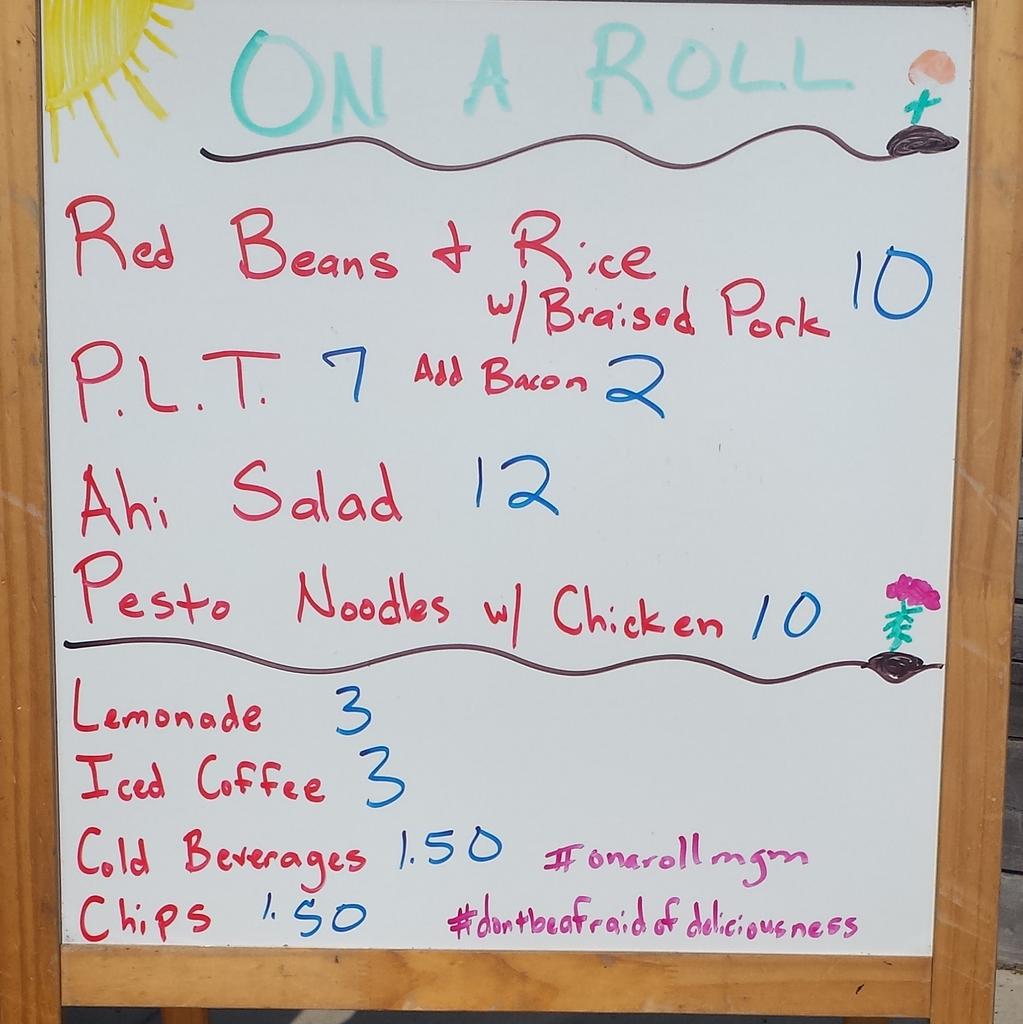 ON A ROLL
Red Beans + Rice
w/ Braised Pork 10
P.L.T. 7 Add Bacon 2
Ahi Salad 12
Pesto Noodles w/ Chicken 10
Lemonade 3
Iced Coffee 3
Cold Beverages 1.50 #onarollmgm
Chips 1.50 #dontbeafraidofdeliciousness